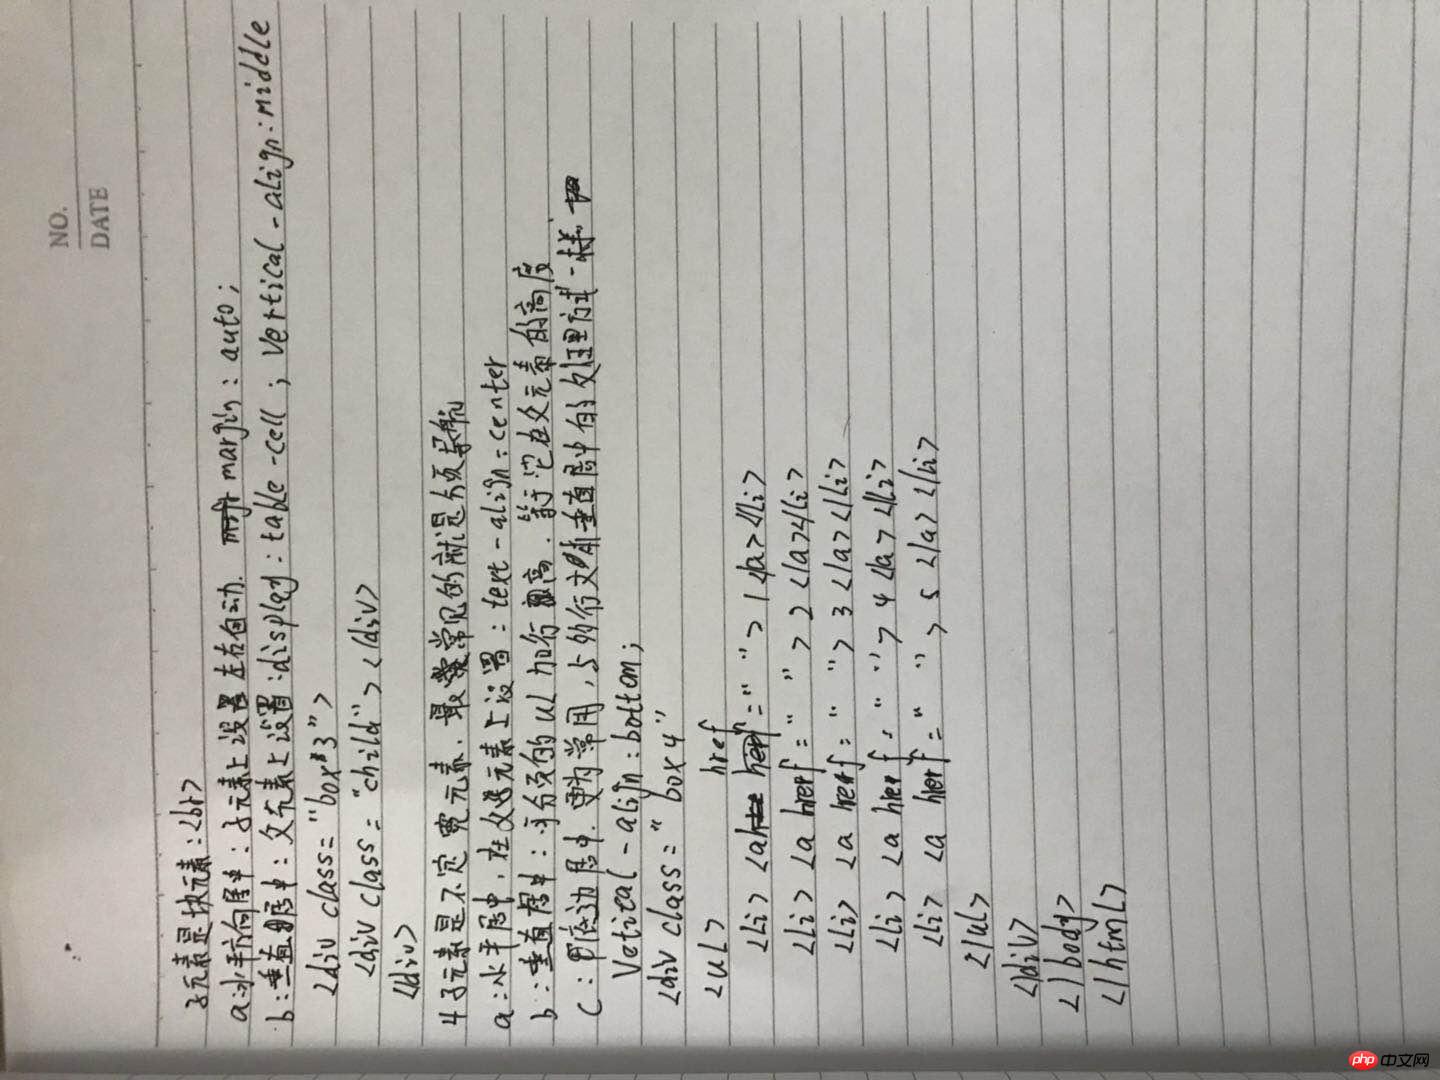 NO.
DATE
子元素是块元素:<br>
a:水平方向居中:子元素上设置左右自动. margin:auto;
b:垂直居中:父元素上设置:display:table-cell;vertical-align:middle
<div class="box3">
<div class="child"></div>
</div>
4子元素是不定宽元素.最常见的就是分页导航
a:水平居中,在父元素上设置:text-align:center
b:垂直居中:分页的ul加行高.等于它在父元素的高度
C:底边居中.更为常用,与多行文本垂直居中的处理方式一样
Vetical-align:bottom;
<div class="box4"
<ul> href
<li><a href="">1</a></li>
<li><a href="">2</a></li>
<li><a href="">3</a></li>
<li><a href="">4</a></li>
<li><a href="">5</a></li>
</ul>
</div>
</body>
</html>
php 中文网